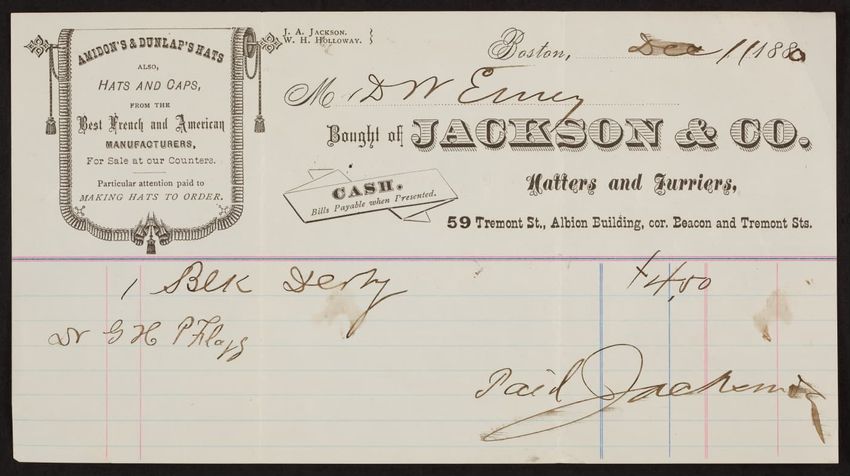 AMIDON'S & DUNLAP'S HATS
ALSO,
HATS AND CAPS,
FROM THE
Best French and American
MANUFACTURERS,
For Sale at our Counters.
Particular attention paid to
MAKING HATS TO ORDER.
J. A. JACKSON.
W. H. HOLLOWAY.
Boston, Dec 11 1880
M D W
Bought of JACKSON & CO.
Hatters and Furriers,
CASH.
Bills Payable when Presented.
59 Tremont St., Albion Building, cor. Beacon and Tremont Sts.
1 Blk Derby $4.00
Dr G H P Flagg
Paid Jackson